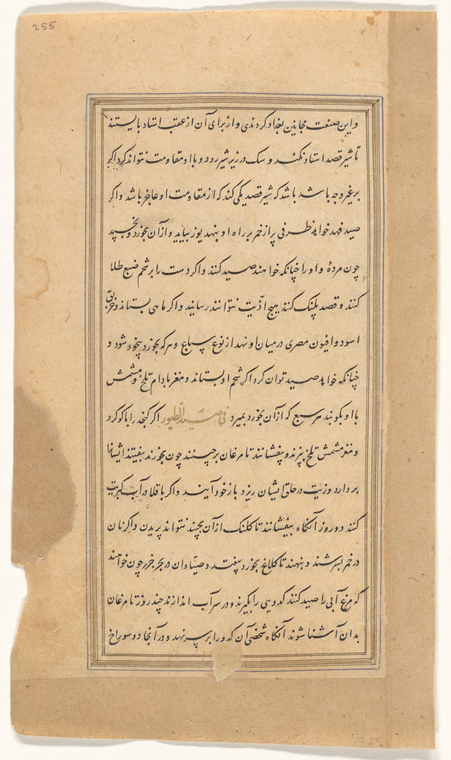 255
واین صنعت مجانین بغداد کردندی واز برای آن از عقب استاد بایستند
تا شیر قصد استاد نکند و سک در زیر شیر رود و با او مقاومت نتواند کرد واکر
بر غیر وجه باشد باشد که شیر قصد یکی کند که از مقاومت او عاجز باشد واکر
صید فهد خواهد ظرفی پر از خمر بر راه او بنهد یوز بیاید وازان بخورد و بخسپد
چون مردهٔ و او را چنانکه خواهند صید کنند واکر دست را بر شحم ضبع طلا
کنند و قصد پلنک کنند هیچ اذیت نتوانند رسانید واکر ماهی بستاند و خربق
اسود وافیون مصری در میان ونهد از نوع سباع و هرکه بخورد بیخود شود و
چنانکه خواهد صید توان کرد اکر شحم او بستاند و مغز بادام تلخ و مشمش
با او بکوبند هر سبع که ازان بخورد بمیرد فی صید الطیور اکر کنجد را با کوکرد
و مغز مشمش تلخ بپزند و بیفشانند تا مرغان برچینند چون بخورند بیفتند ایشانرا
بردارد وزیت در حلق ایشان ریزد باز خود آیند واکر باقلا در آب کبریت
کنند دو روز آنکاه بیفشانند تا کلنک ازآن بچیند نتواند پریدن واکر نان
در خمر بسرشند و بنهند تا کلاغ بخورد بیفتد صیادان در بحر خزر چون خواهند
که مرغ آبی را صید کنند کدویی را بکیرند و در سر آب اندازند چند روز تا مرغان
بدان آشنا شوند آنکاه شخصی آن کدو را بر سر نهد و در آنجا دو سوراخ